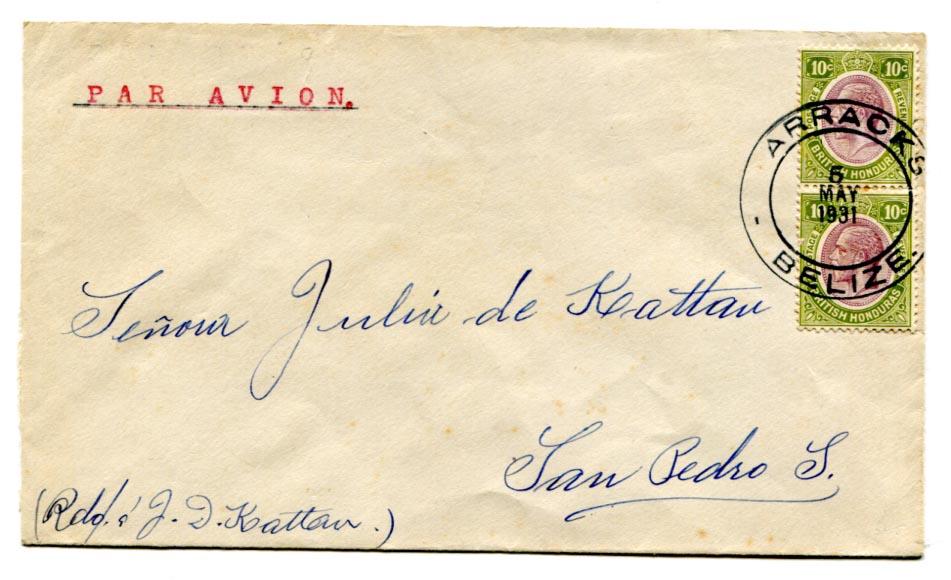 PAR AVION.
10c 10c
POSTAGE REVENUE
BRITISH HONDURAS
ARRACKS
6
MAY
1931
BELIZE
10c 10c
POSTAGE
BRITISH HONDURAS
Señora Julia de Kattan
San Pedro S.
J. D. Kattan.)